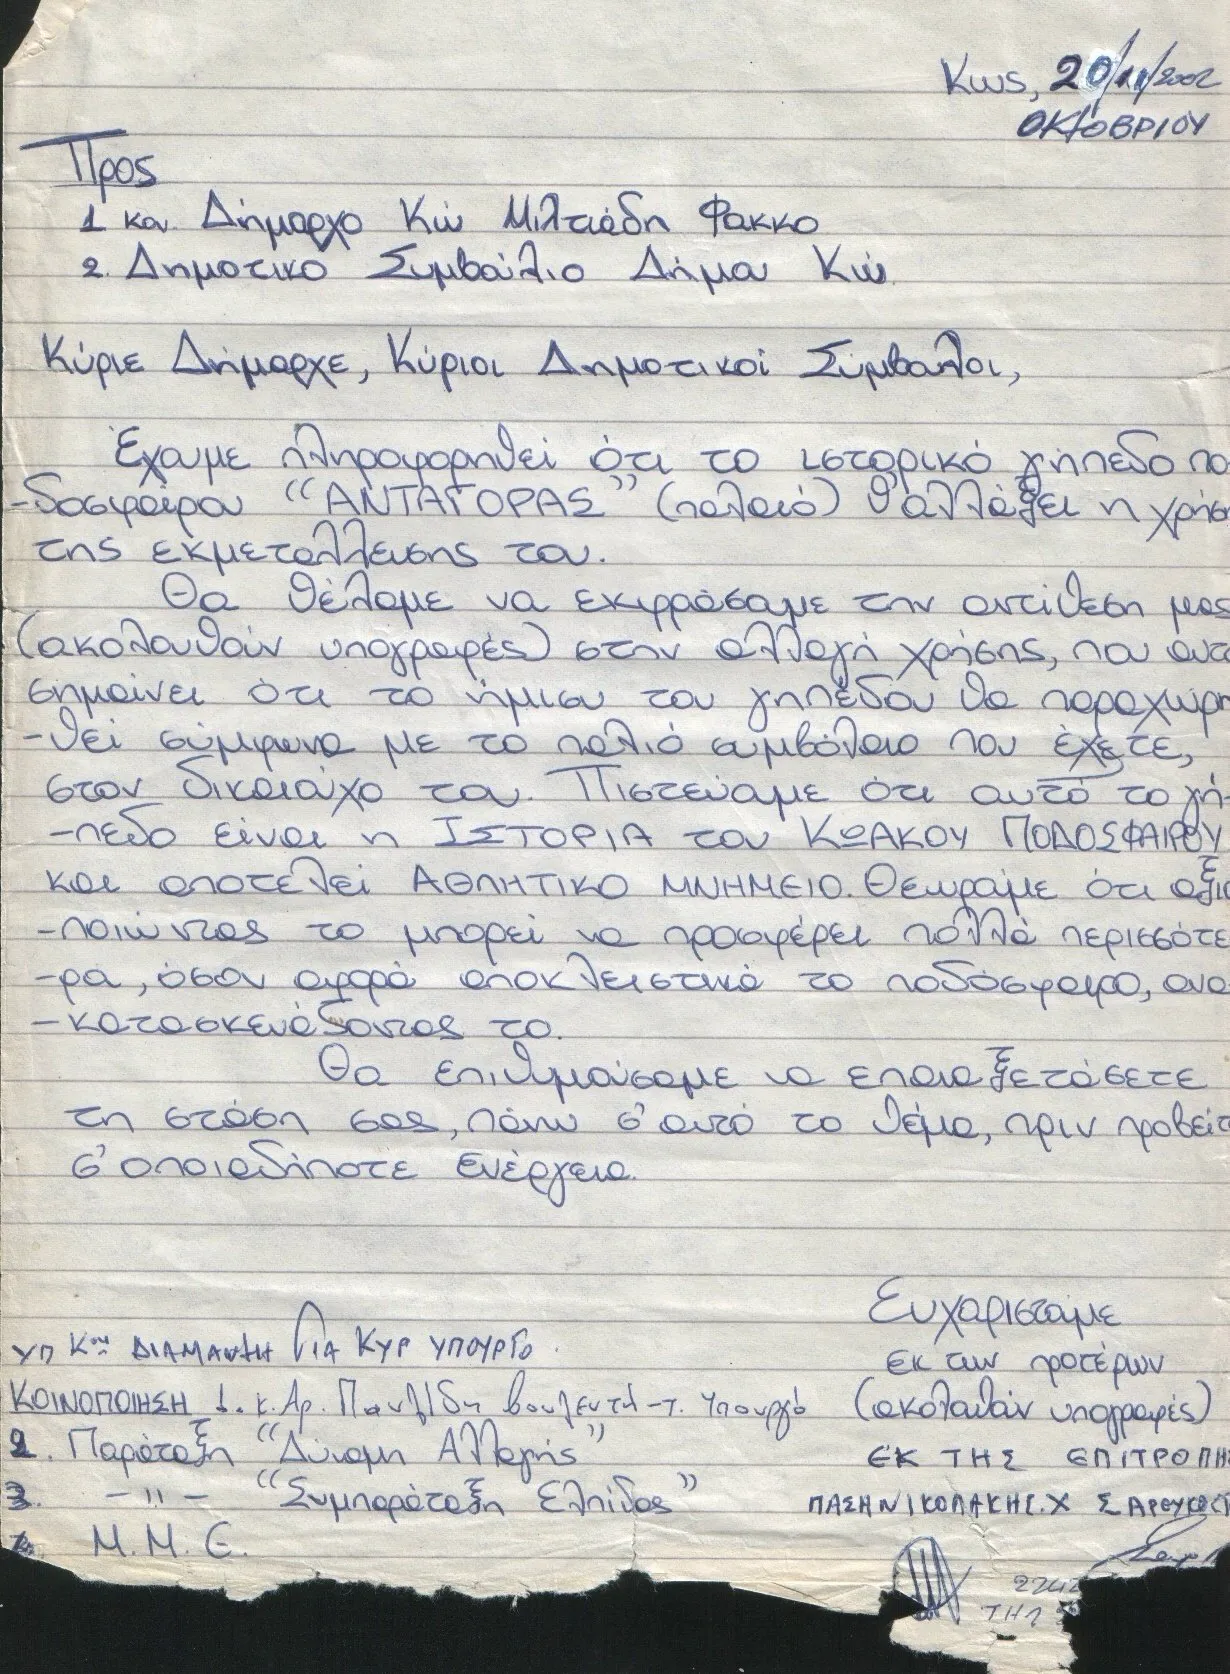 Κως, 20/11/2002
ΟΚΤΟΒΡΙΟΥ
Προς
1 κον Δήμαρχο Κω Μιλτιάδη Φάκκο
2. Δημοτικό Συμβούλιο Δήμου Κω
Κύριε Δήμαρχε, Κύριοι Δημοτικοί Σύμβουλοι,
Έχουμε πληροφορηθεί ότι το ιστορικό γήπεδο πο
-δοσφαίρου "ΑΝΤΑΓΟΡΑΣ" (παλαιό) θ'αλλάξει η χρήσ
της εκμετάλλευσης του.
Θα θέλαμε να εκφράσουμε την αντίθεση μας
(ακολουθούν υπογραφές) στην αλλαγή χρήσης, που αυτ
σημαίνει ότι το ήμισυ του γηπέδου θα παραχωρη
-θεί σύμφωνα με το παλιό συμβόλαιο που έχετε,
στον δικαιούχο του. Πιστεύουμε ότι αυτό το γή-
-πεδο είναι η ΙΣΤΟΡΙΑ του ΚΩΑΚΟΥ ΠΟΔΟΣΦΑΙΡΟΥ
και αποτελεί ΑΘΛΗΤΙΚΟ ΜΝΗΜΕΙΟ. Θεωρούμε ότι αξιο
-ποιώντας το μπορεί να προσφέρει πολλά περισσότε
-ρα, όσον αφορά αποκλειστικά το ποδόσφαιρο, ανα
-κατασκευάζοντας το.
Θα επιθυμούσαμε να επαναξετάσετε
τη στάση σας, πάνω σ'αυτό το θέμα, πριν προβείτ
σ'οποιαδήποτε ενέργεια.
Ευχαριστούμε
εκ των προτέρων
(ακολουθούν υπογραφές)
ΕΚ ΤΗΣ ΕΠΙΤΡΟΠΗΣ
ΥΠ Κον ΔΙΑΜΑΝΤΗ ΓΙΑ ΚΥΡ ΥΠΟΥΡΓΟ.
ΚΟΙΝΟΠΟΙΗΣΗ 1. κ. Αρ. Παυλίδη βουλευτή-τ. Υπουργό
2. Παράταξη "Δύναμη Αλλαγής"
3. -"- "Συμπαράταξη Ελπίδας"
Μ.Μ.Ε.
ΤΗΛ